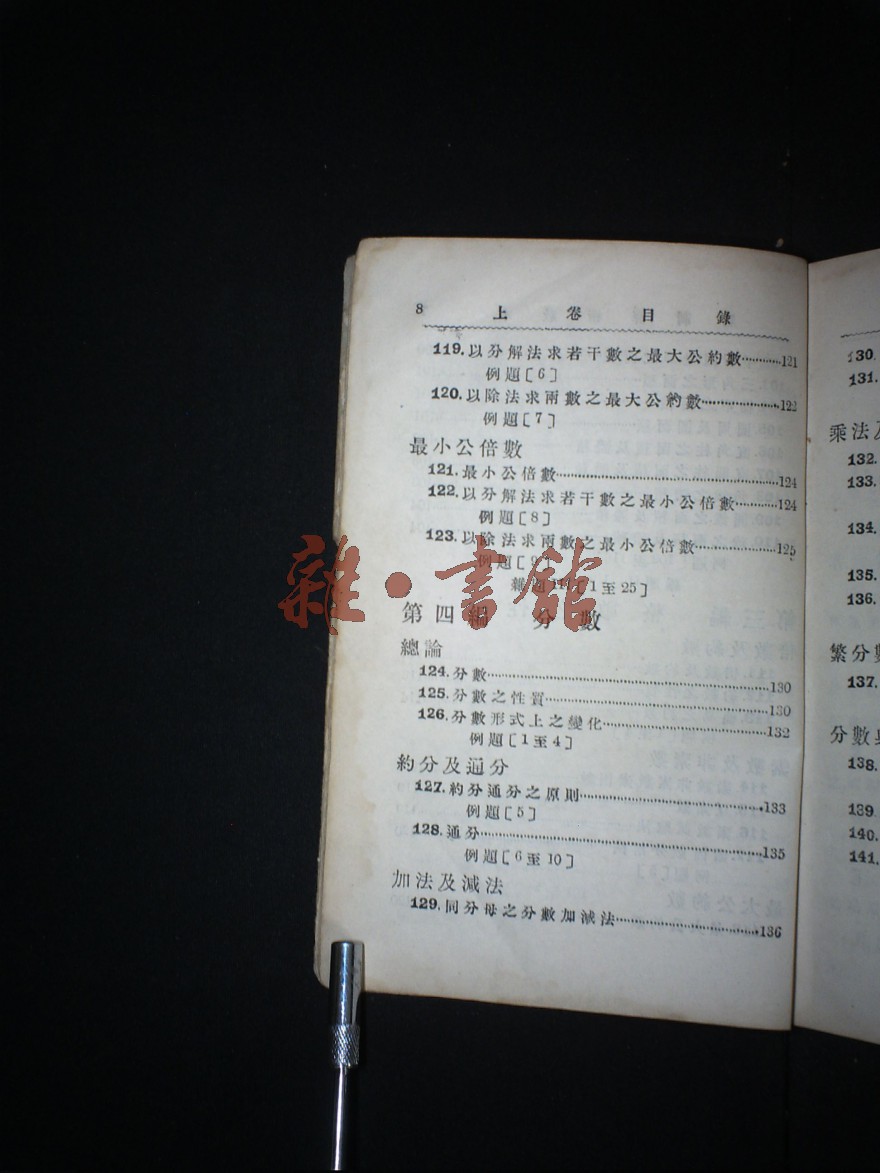 8 上卷目錄
119.以分解法求若干數之最大公約數…………121
例題〔6〕
120.以除法求兩數之最大公約數…………122
例題〔7〕
最小公倍數
121.最小公倍數…………124
122.以分解法求若干數之最小公倍數…………124
例題〔8〕
123.以除法求兩數之最小公倍數…………125
例題〔9〕
雜題III〔1至25〕
第四編 分數
總論
124.分數…………130
125.分數之性質…………130
126.分數形式上之變化…………132
例題〔1至4〕
約分及通分
127.約分通分之原則…………133
例題〔5〕
128.通分…………135
例題〔6至10〕
加法及減法
129.同分母之分數加減法…………136
雜·書館
130.
131.
乘法及
132.
133.
134.
135.
136.
繁分數
137.
分數與
138.
139.
140.
141.